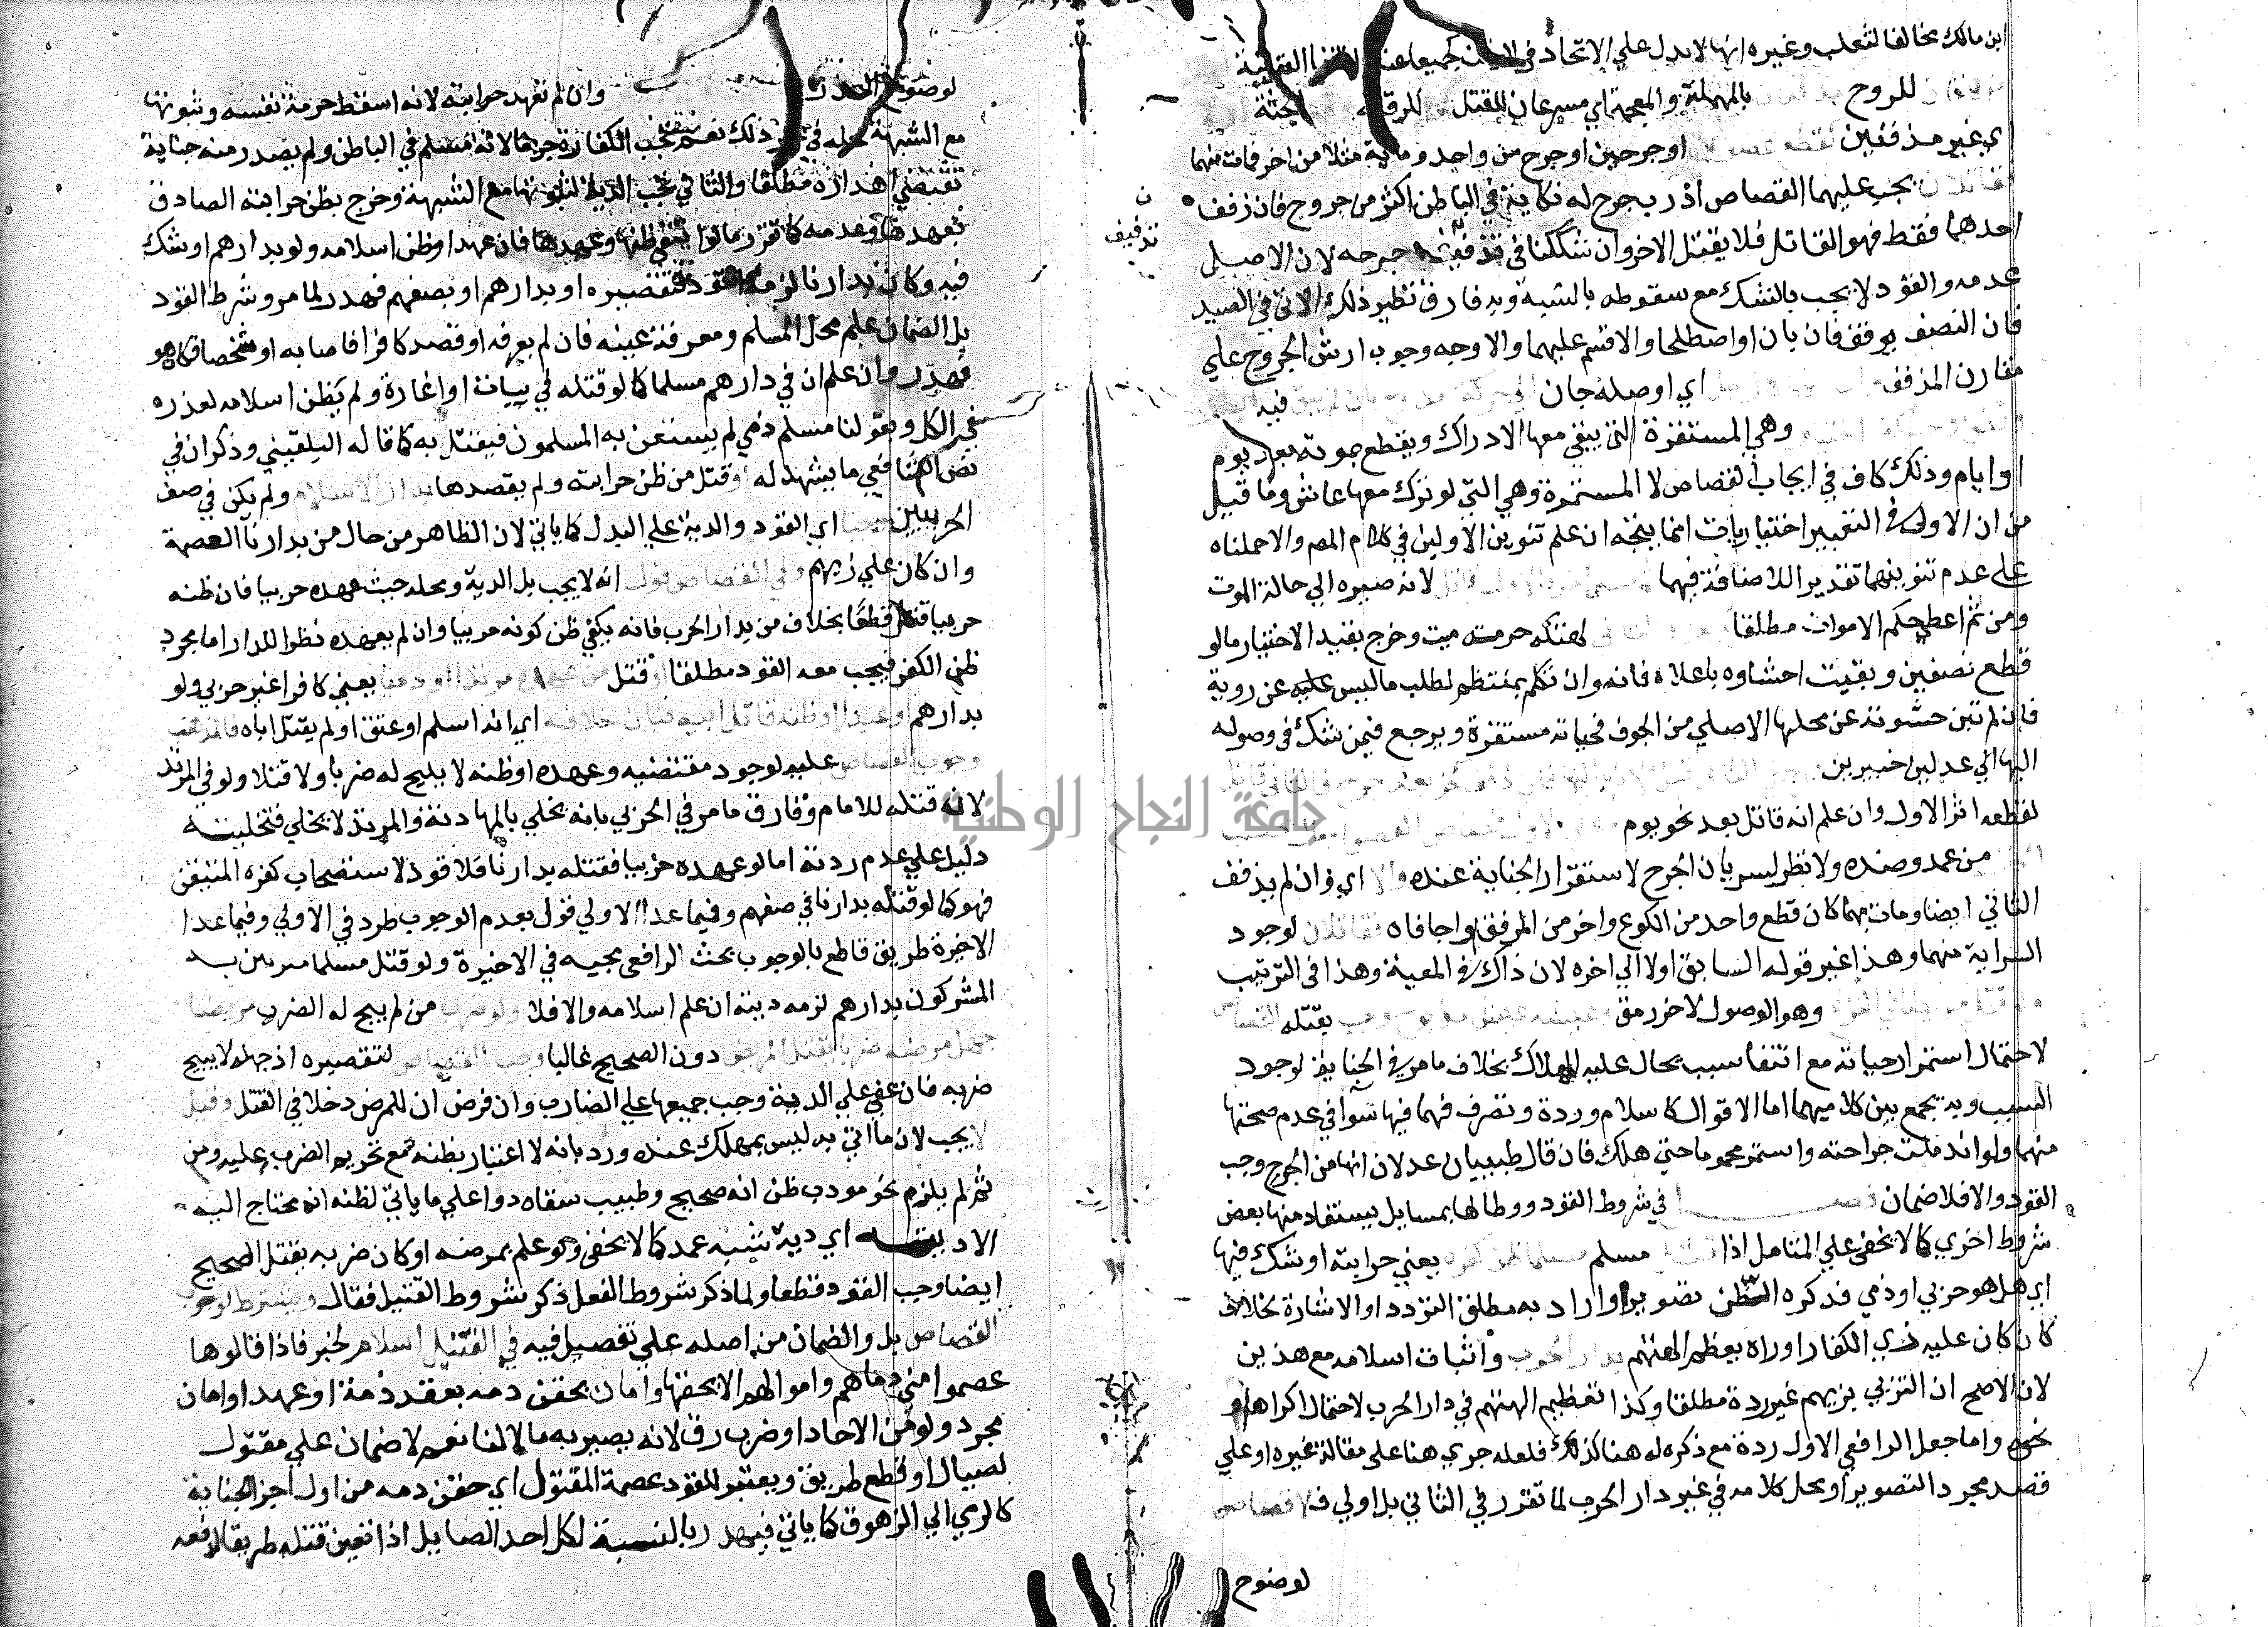 ابن مالك مخالفا لثعلب وغيره انها لا تدل علي الاتحاد في
للروح بالمهملة والمعجمة اي مسرعان للقتل للرقبة الجثة
اي غير مذففين او جرحين او جرح من واحد وماية مثلا من اخر فمات منهما
يجب عليهما القصاص اذ رب جرح له نكاية في الباطن اكثر من جروح فان ذفف
احدهما فقط فهو القاتل فلا يقتل الاخر وان شككنا في تذفيف جرحه لان الاصل
عدمه والقود لا يجب بالشك مع سقوطه بالشبهة وبه فارق نظير ذلك الاتي في الصيد
فان النصف يوقف فان بان او اصطلحا والا قسم عليهما والاوجه وجوب ارش الجرح علي
مقارن المذفف اي اوصله جان فيه
وهي المستقرة التي يبقي معها الادراك ويقطع بموته بعد يوم
او ايام وذلك كاف في ايجاب القصاص لا المستمرة وهي التي لو ترك معها عاش وما قيل
من ان الاولي في التعبير اختياريات انما يتجه ان علم تنوين الاولين في كلام المص والا حملناه
علي عدم تنوينهما تقدير الاضافة فيهما لانه صيره الي حالة الموت
ومن ثم اعطي حكم الاموات مطلقا لهتكه حرمة ميت وخرج بقيد الاختيار ما لو
قطع نصفين وبقيت احشاوه باعلاه فانه وان تكلم بمنتظم لطلب ما ليس عليه عن روية
فان لم تبن حشوته عن محلها الاصلي من الجوف فحياته مستقرة ويرجع فيمن شك في وصوله
اليها الي عدلين خبيرين
لقطعه اثر الاول وان علم انه قاتل بعد نحو يوم
من عمد وضده ولا نظر لسريان الجرح لاستقرار الجناية عنده والا اي وان لم يذفف
الثاني ايضا ومات بهما كان قطع واحد من الكوع واخر من المرفق او اجافاه فقاتلان لوجود
السراية منهما وهذا غير قوله السابق اولا الي اخره لان ذاك في المعية وهذا في الترتيب
وهو الوصول لاخر رمق يقتله القصاص
لاحتمال استمرار حياته مع انتفا سبب يحال عليه الهلاك بخلاف ما مر في الجناية لوجود
السبب وبه يجمع بين كلاميهما اما الاقوال كاسلام وردة وتصرف فهما فيها سوا في عدم صحتها
منهما ولو اندملت جراحته واستمر محموما حتي هلك فان قال طبيبان عدلان انها من الجرح وجب
القود والا فلا ضمان فصـــل في شروط القود ووطا لها بمسايل يستفاد منها بعض
شروط اخري كما لا يخفي علي المتامل اذا مسلم مسلما ظن كفره يعني حرابته او شك فيها
اي هل هو حربي او ذمي فذكره الظن تصوير او اراد به مطلق التردد او الاشارة بخلاف
كان كان عليه زي الكفار او راه يعظم الهتهم بدار الحرب واثبات اسلامه مع هذين
لان الاصح ان التزيي بزيهم غير ردة مطلقا وكذا تعظيم الهتهم في دار الحرب لاحتمال اكراه او
نحوه واما جعل الرافعي الاول ردة مع ذكره له هنا كذلك فلعله جري هنا علي مقالة غيره او علي
قصد مجرد التصوير او محل كلامه في غير دار الحرب لما تقرر في الثاني بل اولي فلا قصاص
لوضوح
ن
تذفيف
لوضوح العذر وان لم نعهد حرابته لانه اسقط حرمة نفسه وثبوتها
مع الشبهة محله في غير ذلك نعم تجب الكفارة جزما لانه مسلم في الباطن ولم يصدر منه جناية
تقتضي اهداره مطلقا والثاني تجب الدية لثبوتها مع الشبهة وخرج بظن حرابته الصادق
بعهدها وعدمه كما تقرر ما لو انتفي ظنها وعهدها فان عهد او ظن اسلامه ولو بدارهم او شك
فيه وكان بدارنا لزمه القود لتقصيره او بدارهم او بصفهم فهدر لما مر وشرط القود
بل الضمان علم محل المسلم ومعرفة عينه فان لم يعرفه او قصد كافرا فاصابه او شخصا فكان هو
فهدر وان علم ان في دارهم مسلما كما لو قتله في بيات او اغارة ولم يظن اسلامه لعذره
في الكل وبقولنا مسلم ذمي لم يستعن به المسلمون فيقتل به كما قاله البلقيني وذكر ان في
نص الشافعي ما يشهد له او قتل من ظن حرابته ولم يقصدها بدار الاسلام ولم يكن في صف
الحربيين اي القود والدية علي البدل كما ياتي لان الظاهر من حال من بدارنا العصمة
وان كان علي زيهم وفي القصاص قول انه لا يجب بل الدية ومحله حيث عهده حربيا فان ظنه
حربيا قتل قطعا بخلاف من بدار الحرب فانه يكفي ظن كونه حربيا وان لم يعهده نظرا للدار اما مجرد
ظن الكفر فيجب معه القود مطلقا او قتل من عهده مرتدا او ذميا يعني كافرا غير حربي ولو
بدارهم وعبدا او ظنه قاتل ابيه فبان خلافه اي انه اسلم او عتق او لم يقتل اباه فالمذهب
وجوب القصاص عليه لوجود مقتضيه وعهده او ظنه لا يبيح له ضربا ولا قتلا ولو في المرتد
لان قتله للامام وفارق ما مر في الحربي بانه يخلي بالمهادنة والمرتد لا يخلي فتخليته
دليل علي عدم ردته اما لو عهده حربيا فقتله بدارنا فلا قود لاستصحاب كفره المتيقن
فهو كما لو قتله بدارنا في صفهم وفيما عدا الاولي قول بعدم الوجوب طرد في الاولي وفيما عدا
الاخيرة طريق قاطع بالوجوب بحث الرافعي مجيه في الاخيرة ولو قتل مسلما تترس به
المشركون بدارهم لزمه دية ان علم اسلامه والا فلا ولو ضرب من لم يبح له الضرب مريضا
جهل مرضه ضربا يقتل المريض دون الصحيح غالبا وجب القصاص لتقصيره اذ جهله لا يبيح
ضربه فان عفي علي الدية وجب جميعها علي الضارب وان فرض ان للمرض دخلا في القتل وقيل
لا يجب لان ما اتي به ليس بمهلك عنده ورد بانه لا اعتبار بظنه مع تحريم الضرب عليه ومن
ثم لم يلزم نحو مودب ظن انه صحيح وطبيب سقاه دوا علي ما ياتي لظنه انه محتاج اليه
الا ديته اي دية شبه عمد كما لا يخفي ولو علم بمرضه او كان ضربه يقتل الصحيح
ايضا وجب القود قطعا ولما ذكر شروط الفعل ذكر شروط القتيل فقال ويشترط لوجوب
القصاص بل والضمان من اصله علي تفصيل فيه في القتيل اسلام لخبر فاذا قالوها
عصموا مني دماهم واموالهم الا بحقها وامان يحقن دمه بعقد ذمة او عهد او امان
مجرد ولو من الاحاد او ضرب رق لانه يصير به مالا لنا نعم لا ضمان علي مقتول
لصيال او قطع طريق ويعتبر للقود عصمة المقتول اي حقن دمه من اول اجزا الجناية
كالرمي الي الزهوق كما ياتي فيهدر بالنسبة لكل احد الصايل اذا تعين قتله طريقا لدفعه
جامعة النجاح الوطنية